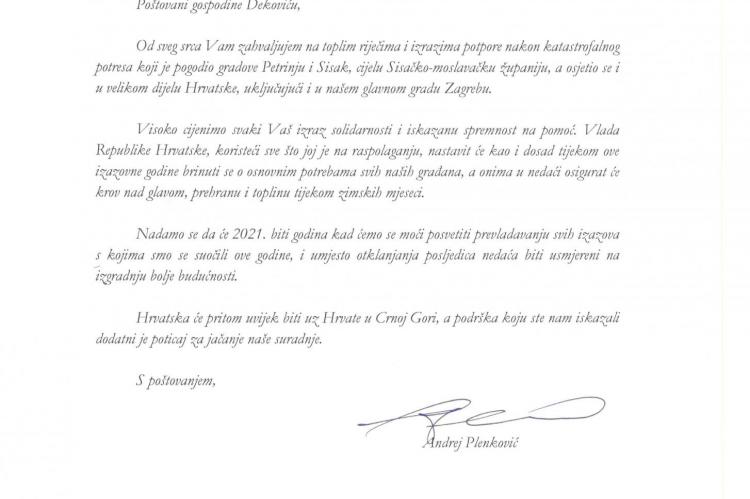 Poštovani gospodine Dekoviću,
Od sveg srca Vam zahvaljujem na toplim riječima i izrazima potpore nakon katastrofalnog
potresa koji je pogodio gradove Petrinju i Sisak, cijelu Sisačko-moslavačku županiju, a osjetio se i
u velikom dijelu Hrvatske, uključujući i u našem glavnom gradu Zagrebu.
Visoko cijenimo svaki Vaš izraz solidarnosti i iskazanu spremnost na pomoć. Vlada
Republike Hrvatske, koristeći sve što joj je na raspolaganju, nastavit će kao i dosad tijekom ove
izazovne godine brinuti se o osnovnim potrebama svih naših građana, a onima u nedaći osigurat će
krov nad glavom, prehranu i toplinu tijekom zimskih mjeseci.
Nadamo se da će 2021. biti godina kad ćemo se moći posvetiti prevladavanju svih izazova
s kojima smo se suočili ove godine, i umjesto otklanjanja posljedica nedaća biti usmjereni na
izgradnju bolje budućnosti.
Hrvatska će pritom uvijek biti uz Hrvate u Crnoj Gori, a podrška koju ste nam iskazali
dodatni je poticaj za jačanje naše suradnje.
S poštovanjem,
Andrej Plenković